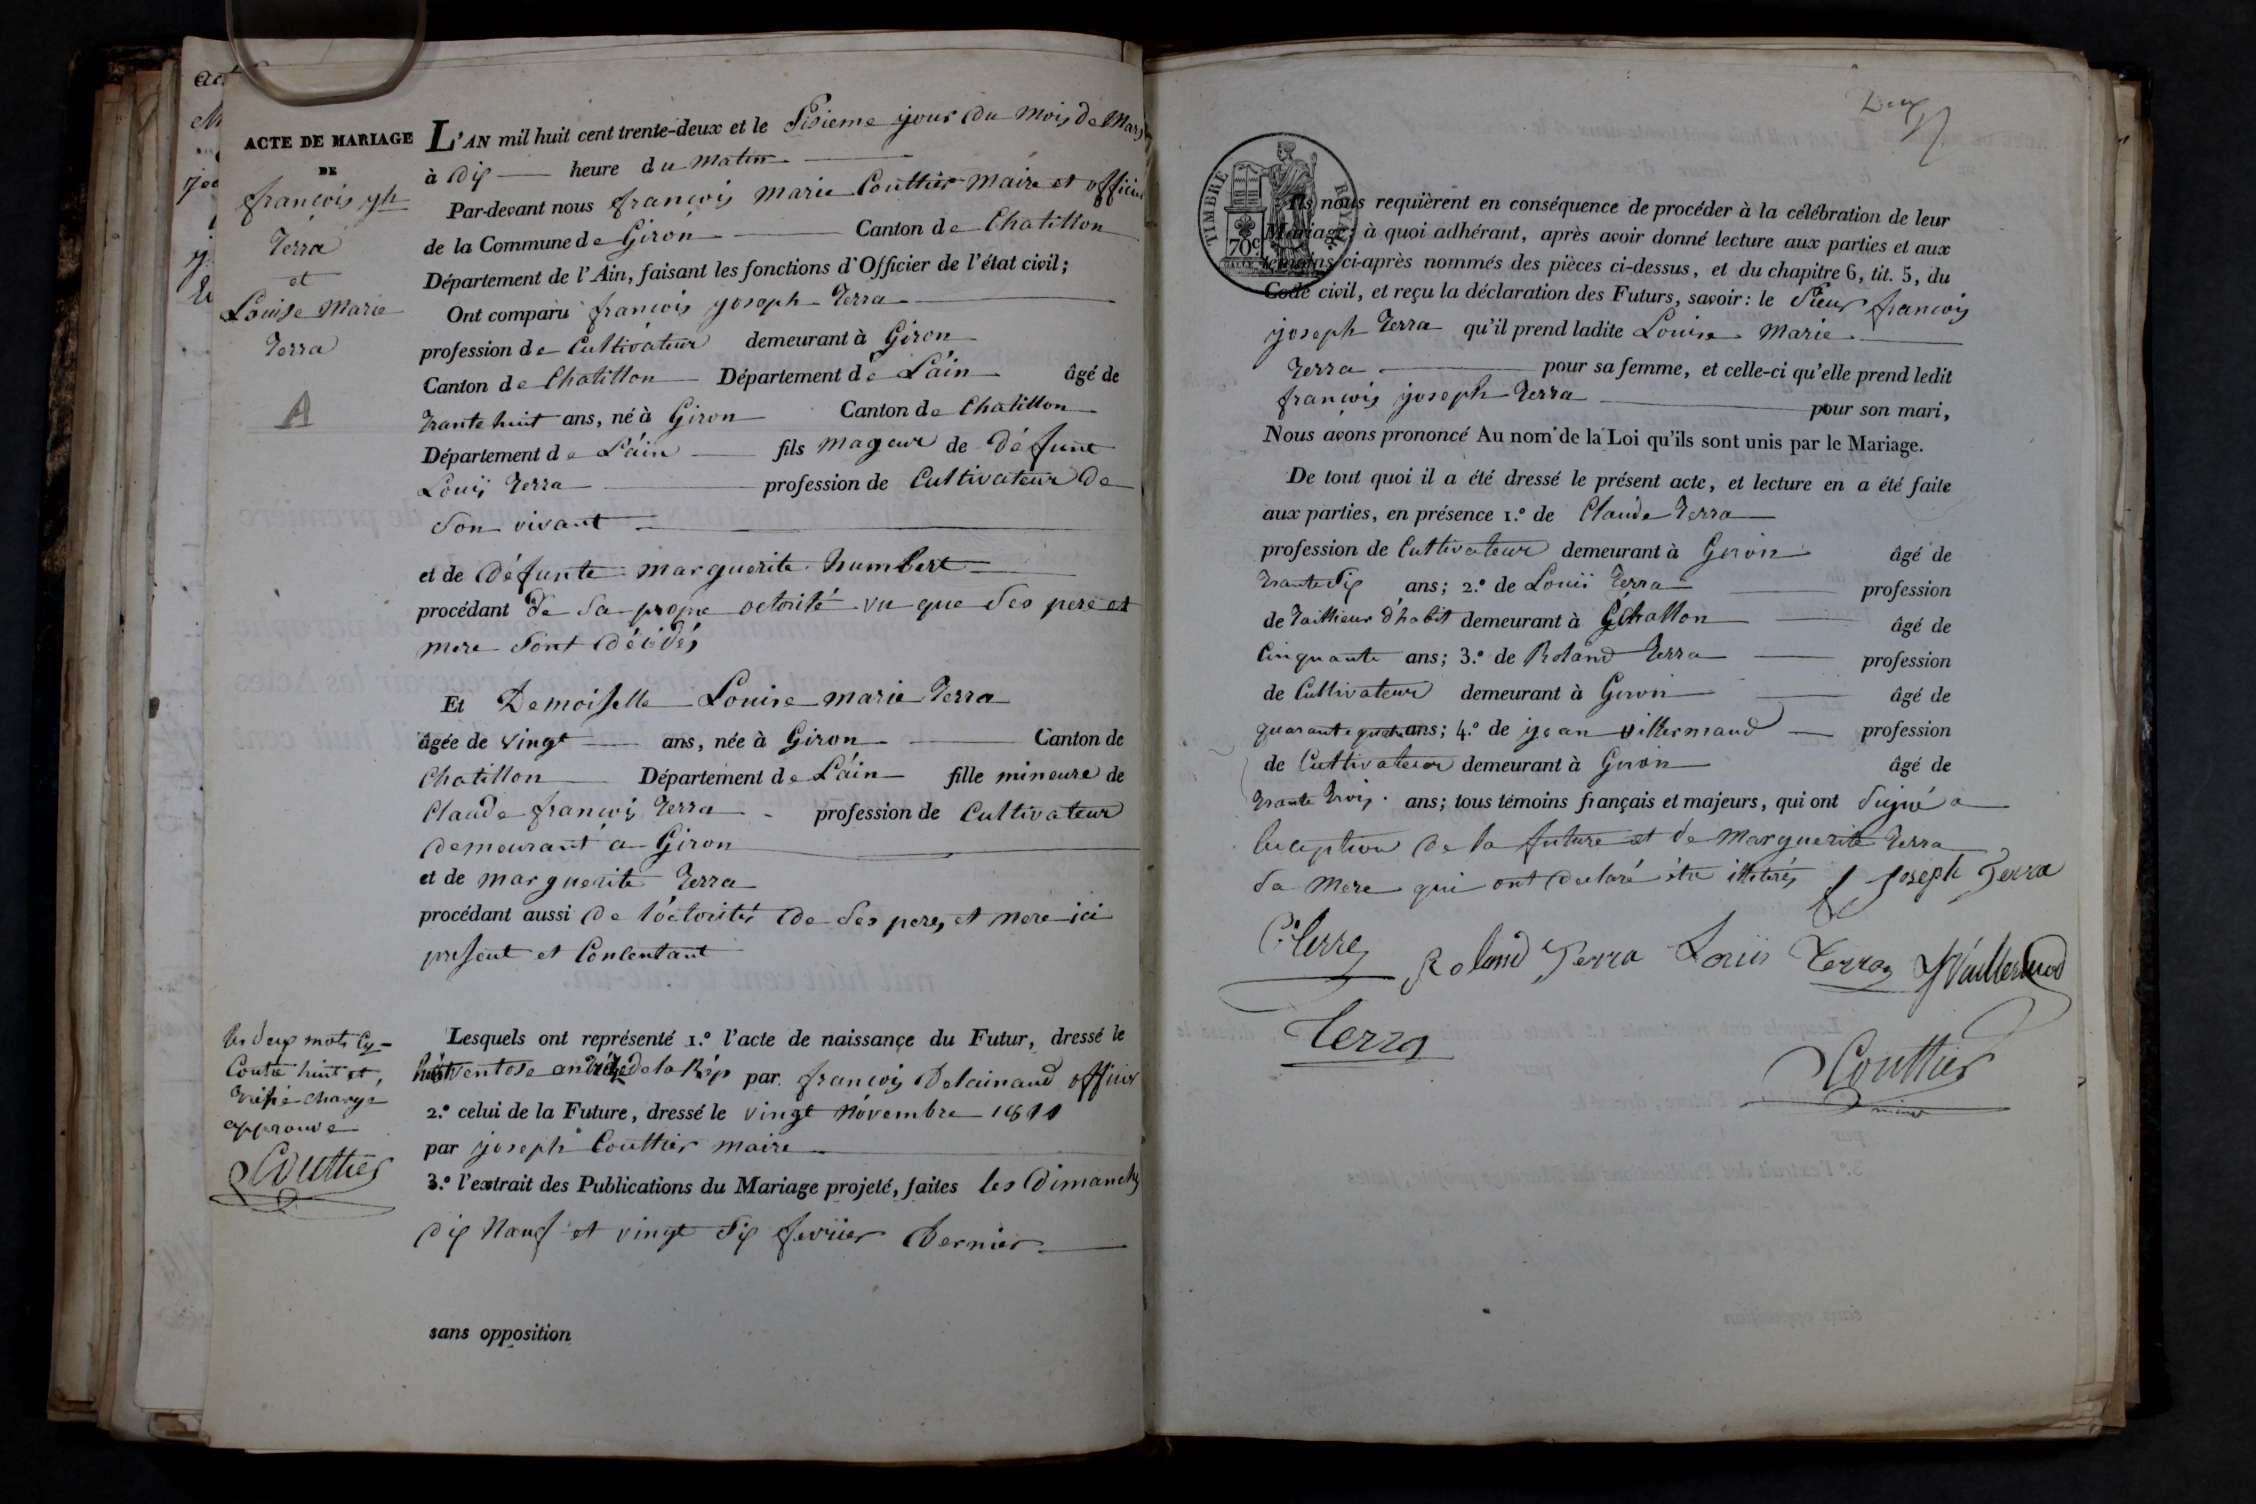 ACTE DE MARIAGE
DE
françois jh
Terra
et
Louise Marie
Terra
A
L'AN mil huit cent trente-deux et le Sisieme jour du Mois de Mars
à Dix heure du Matin
Par-devant nous françois Marie Couttier Maire et officier
de la Commune de Giron Canton de Chatillon
Département de l'Ain, faisant les fonctions d'Officier de l'état civil;
Ont comparu françois joseph Terra
profession de Cultivateur demeurant à Giron
Canton de Chatillon Département de L'áin âgé de
trante huit ans, né à Giron Canton de Chatillon
Département de L'áin fils mageur de défunt
Louis Terra profession de Cultivateur de
Son vivant
et de Défunte marguerite humbert
procédant de Sa propre octorité vu que Ses pere et
mere Sont Décédés
Et Demoiselle Louise marie Terra
âgée de vingt ans, née à Giron Canton de
Chatillon Département de L'áin fille mineure de
Claude françois Terra profession de Cultivateur
demeurant a Giron
et de marguerite Terra
procédant aussi de l'octorité de Ses pere, et mere ici
present et Consentant
les deux mots Cy-
Contre huit et,
treise charge
approuve
Couttier
Lesquels ont représenté 1.º l'acte de naissance du Futur, dressé le
huit ventose an de la Rép par françois Delainaud officier
2.º celui de la Future, dressé le vingt Novembre 1811
par joseph Couttier maire
3.º l'extrait des Publications du Mariage projeté, faites les Dimanche
dix Nauf et vingt Six fevrier Dernier
sans opposition
Deux
TIMBRE ROYAL
70c
Ils nous requièrent en conséquence de procéder à la célébration de leur
Mariage; à quoi adhérant, après avoir donné lecture aux parties et aux
témoins ci-après nommés des pièces ci-dessus, et du chapitre 6, tit. 5, du
Code civil, et reçu la déclaration des Futurs, savoir: le Sieur francois
joseph Terra qu'il prend ladite Louise Marie
Terra pour sa femme, et celle-ci qu'elle prend ledit
françois joseph Terra pour son mari,
Nous avons prononcé Au nom de la Loi qu'ils sont unis par le Mariage.
De tout quoi il a été dressé le présent acte, et lecture en a été faite
aux parties, en présence 1.º de Claude Terra
profession de Cultivateur demeurant à Giron âgé de
trante Six ans; 2.º de Louis Terra profession
de Taillieur d'habit demeurant à Échallon âgé de
Cinquante ans; 3.º de Roland Terra profession
de Cultivateur demeurant à Giron âgé de
quarante quatre ans; 4.º de jean villermaud profession
de Cultivateur demeurant à Giron âgé de
trante trois ans; tous témoins français et majeurs, qui ont Signé a
lexeption de la future et de marguerite Terra
Sa mere qui ont declaré être illiterés f Joseph Terra
C. Terra Roland Terra Louis Terra
Terra
Couttier
maire